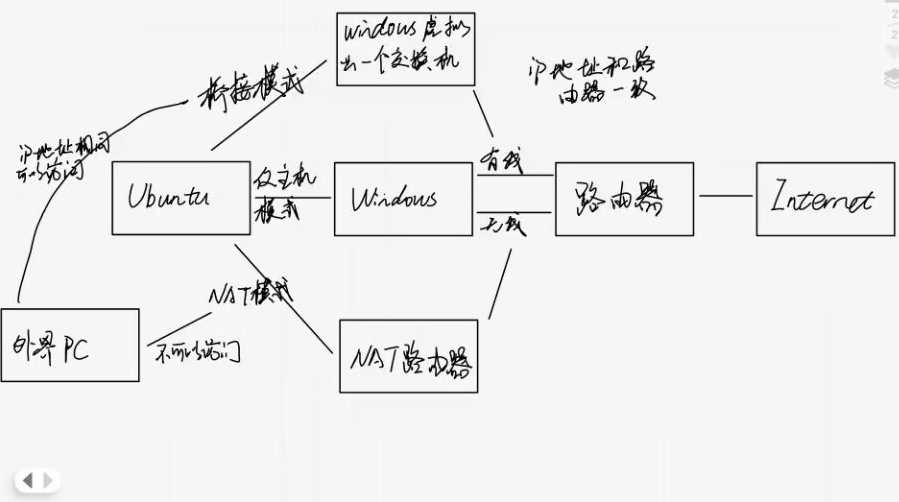 windows虚拟
出一个交换机
桥接模式
IP地址和路
由器一致
IP地址相同
可以访问
Ubuntu
仅主机
模式
Windows
有线
无线
路由器
Internet
NAT模式
外界PC
不可以访问
NAT路由器